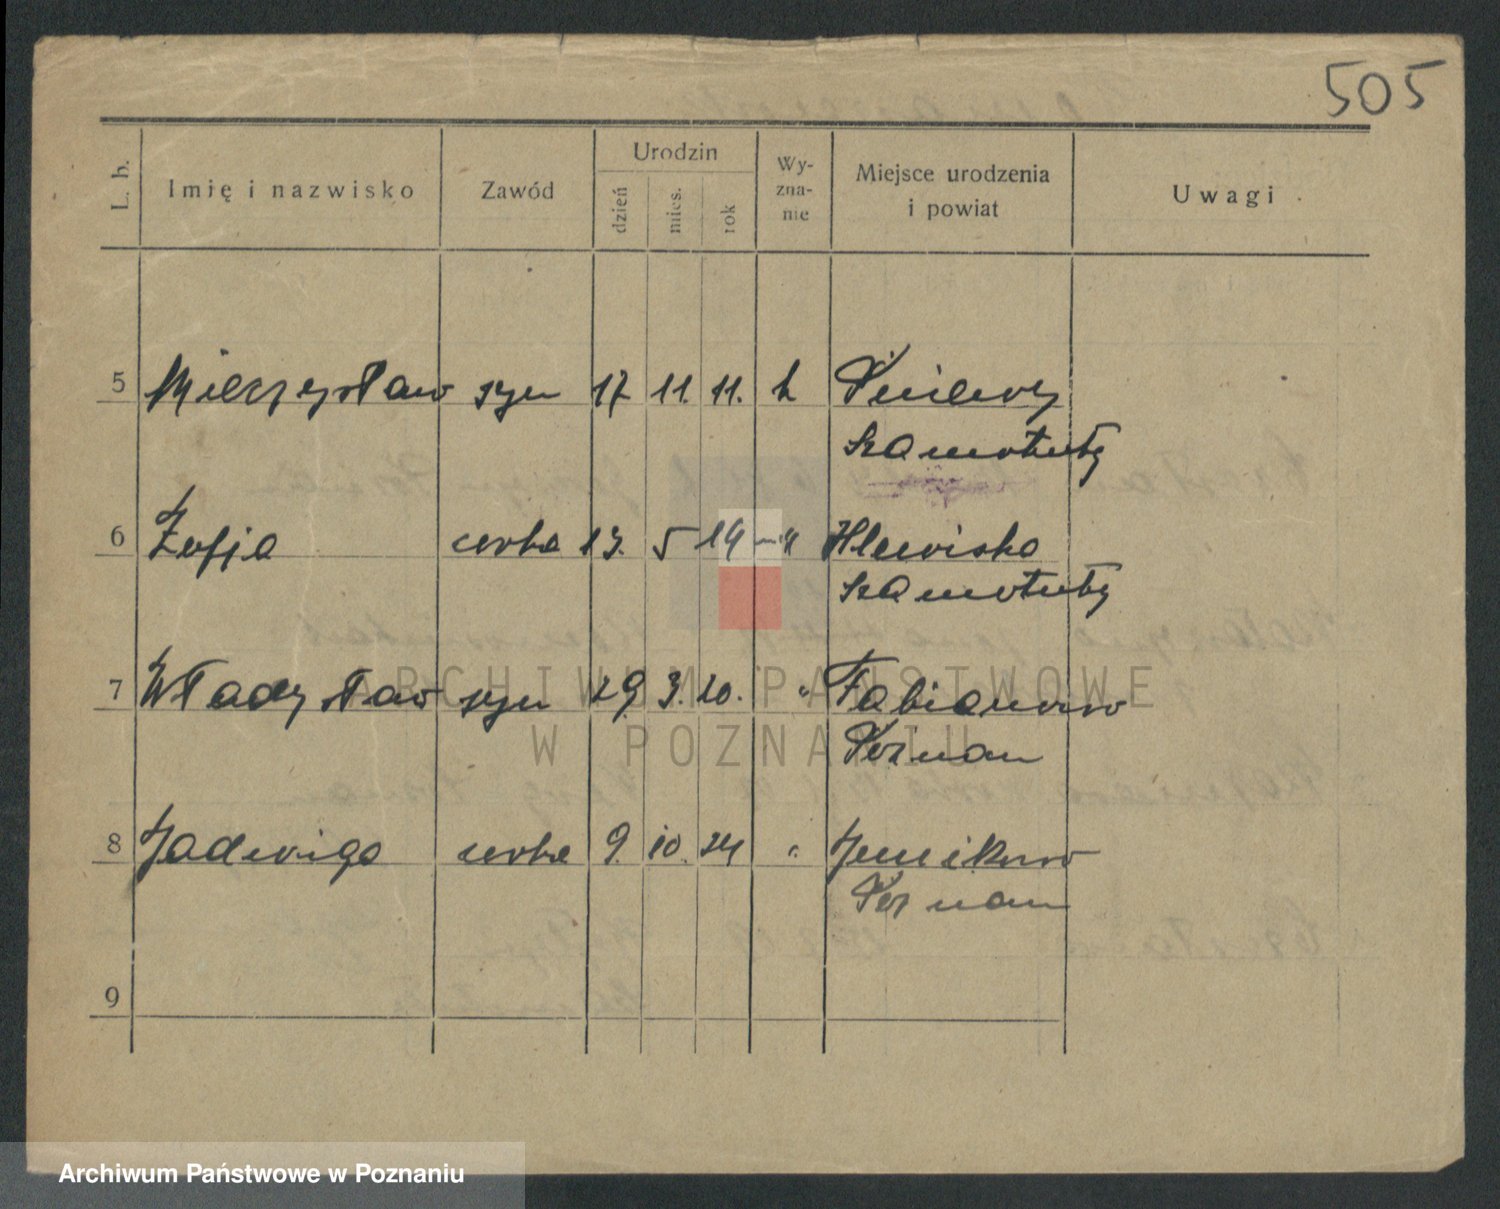 505
L. b. Imię i nazwisko Zawód Urodzin dzień mies. rok Wy-zna-nie Miejsce urodzenia i powiat Uwagi
5 Mieczysław syn 17 11. 11. k
Szamotuły
6 Zofja córka 13. 5 14 "
Szamotuły
7 Władysław syn 29. 3. 20. " Fabianowo
Poznan
8 Jadwiga córka 9. 10. 24 " Junikowo
Poznan
9
ARCHIWUM PAŃSTWOWE
W POZNANIU
Archiwum Państwowe w Poznaniu